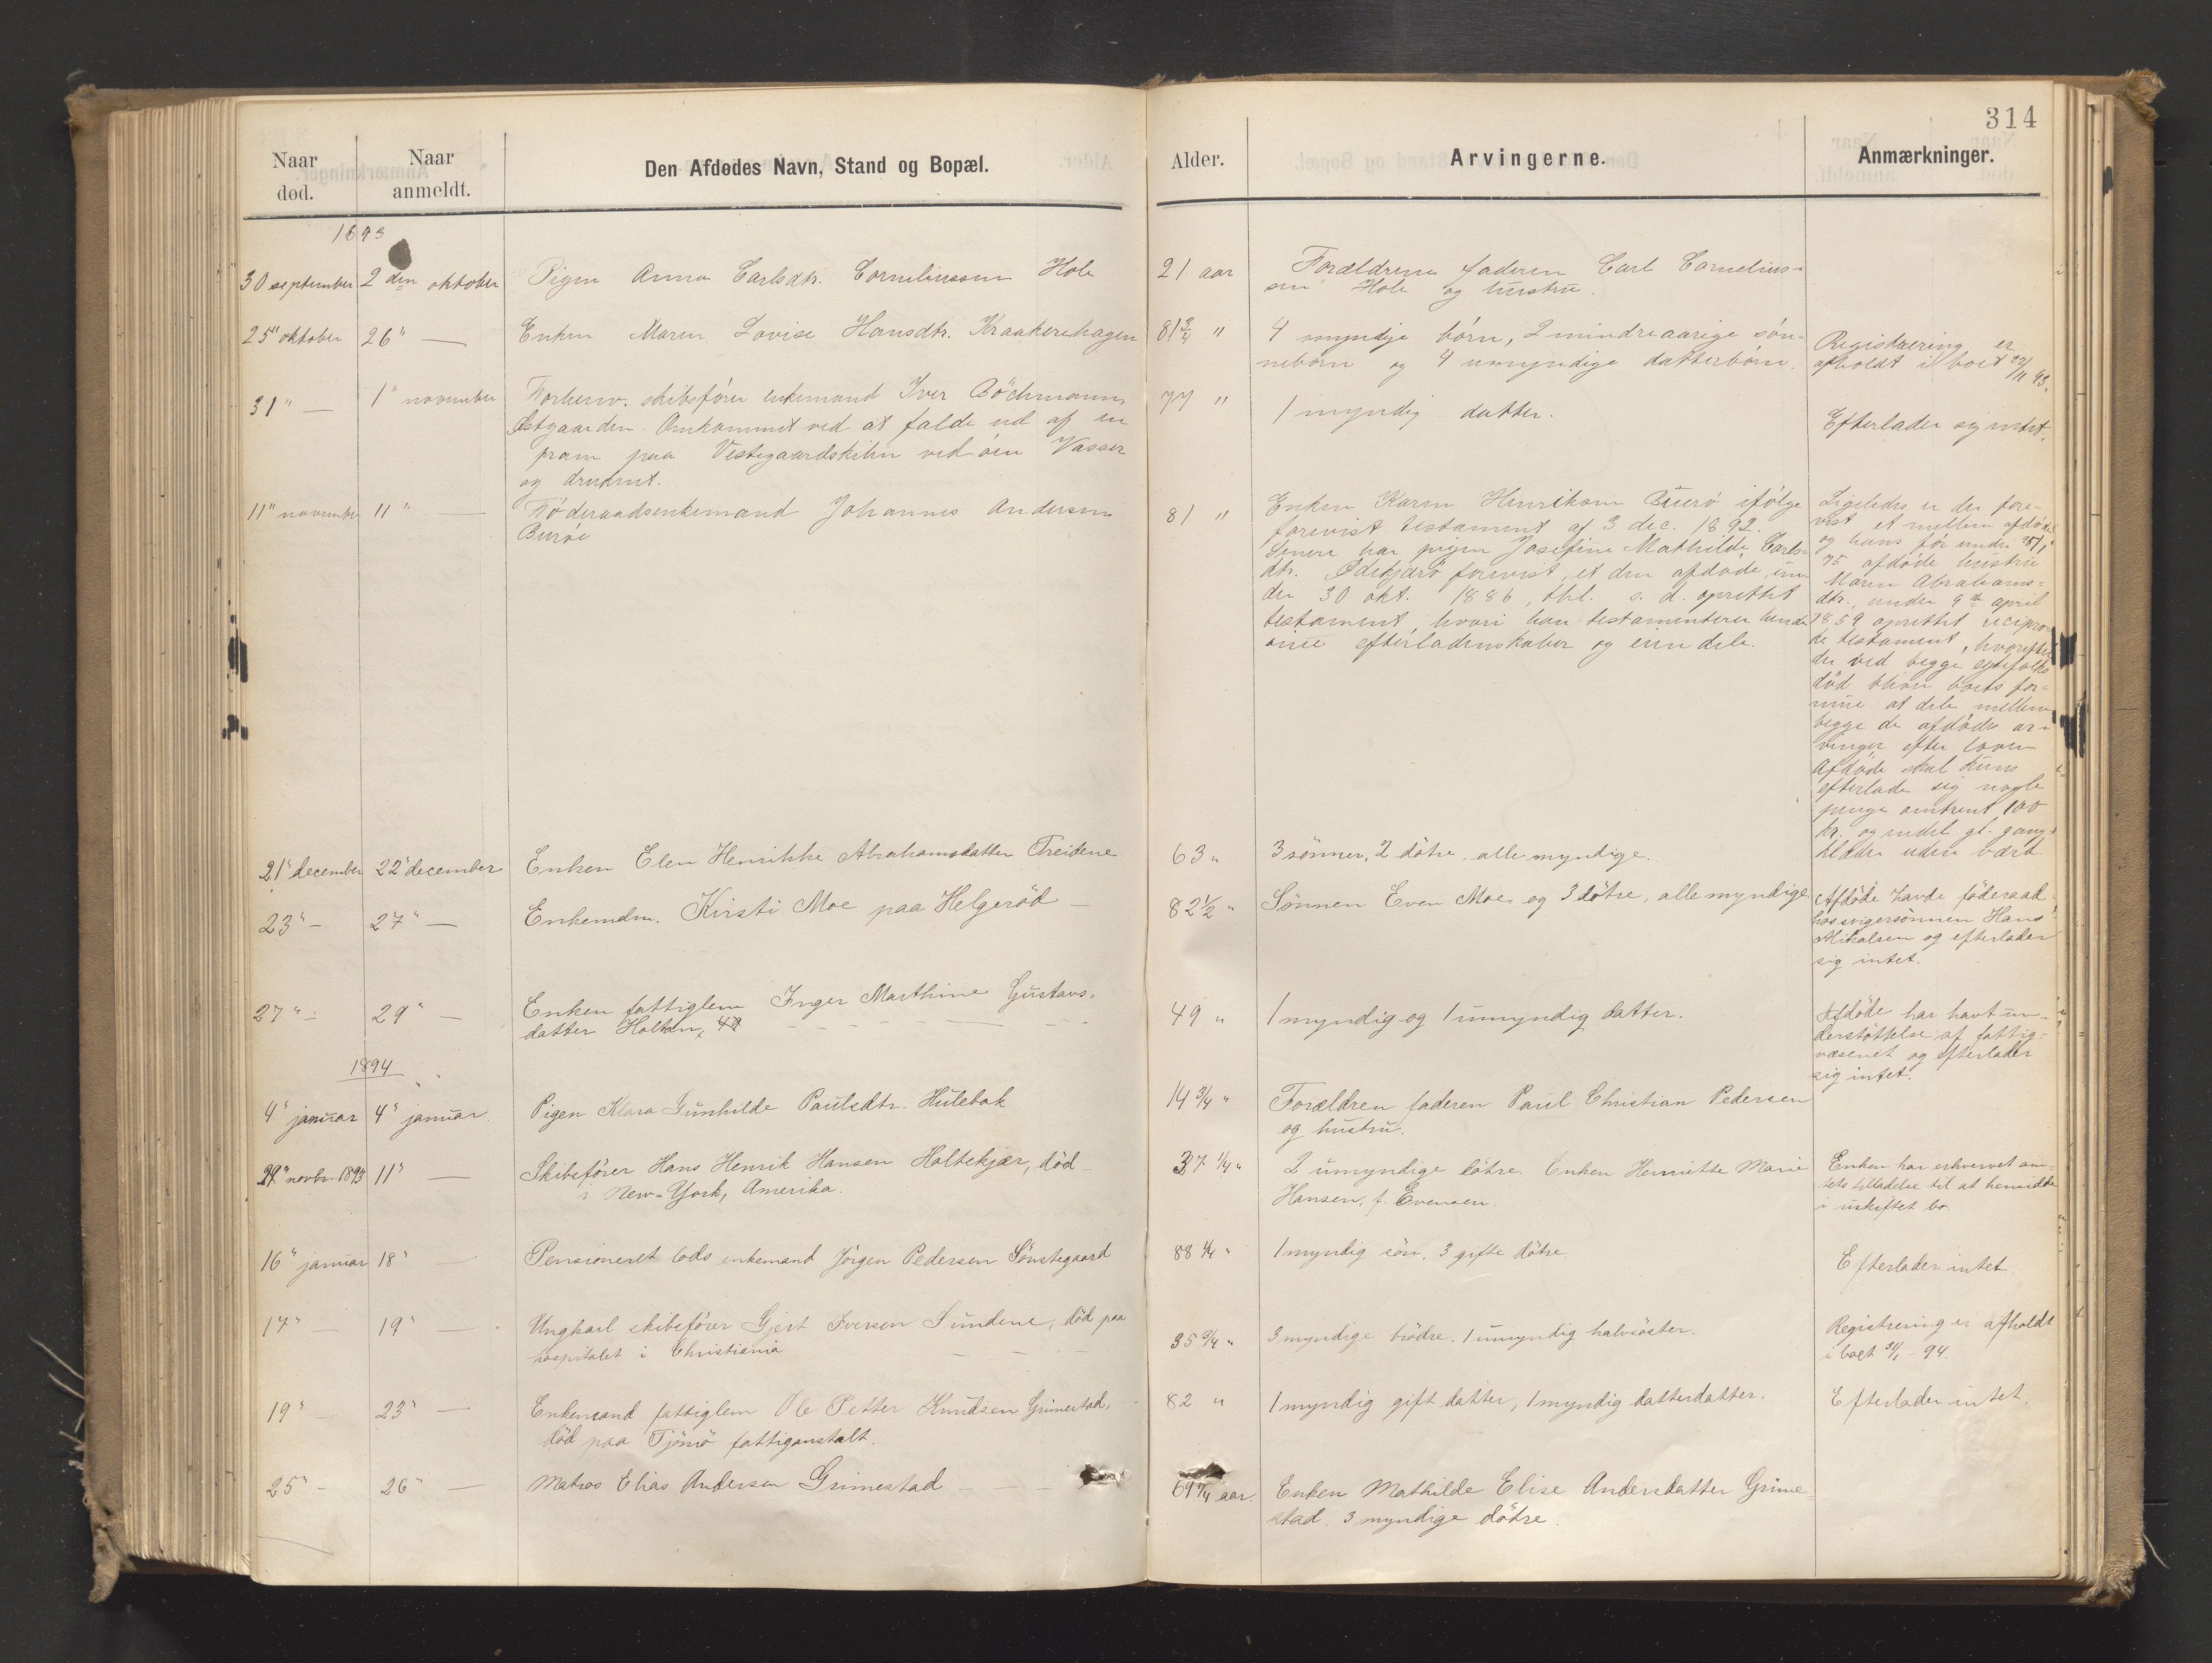 314
Naar død.
Naar anmeldt.
Den Afdødes Navn, Stand og Bopæl.
Alder.
Arvingerne.
Anmærkninger.
1893
30 september
2 den oktober
Pigen Anna Carlsdtr. Corneliussen Hole
21 aar
Forældrene faderen Carl Cornelius-
sen Hole og hustru.
25" oktober
26" —
Enken Maren Lovise Hansdtr. Kraakerehagen
81 3/4 "
4 myndige børn, 2 mindreaarige søn-
nebørn og 4 umyndige datterbørn.
Registrering er
afholdt i boet 22/11 93.
31" —
1" november
Forhenv. skibsfører enkemand Iver Böchmann,
Østgaarden. Omkommet ved at falde ud af en
pram paa Vestegaardskilen ved øen Vasser
og druknet.
77 "
1 myndig datter.
Efterlader sig intet.
11" november
11" —
Føderaadsenkemand Johannes Andersen
Burøe
81 "
Enken Karen Henriksen Buerø ifølge
forevist testament af 3 dec. 1892.
Senere har pigen Josefine Mathilde Carls-
dtr. Ødekjær forevist et den afdøde un-
der 30 okt. 1886, thl. s. d. oprettet
testament, hvori han testamenterer hende
sine efterladenskaber og eiendele.
Ligeledes er der fore-
vist et mellem afdøde
og hans før under 25/1
75 afdøde hustru
Maren Abrahams-
dtr., under 9de april
1859 oprettet recipro-
ke testament, hvorefter
der ved begge egtefolks
død bliver boets for-
mue at dele mellem
begge de afdødes ar-
vinger efter loven
Afdøde skal kuns
efterlade sig nogle
penge omtrent 100
kr. og endel gl. gang-
klæder uden værd
21" december
22" december
Enken Elen Henrikke Abrahamsdatter Treidene
63 "
3 sønner, 2 døtre, alle myndige.
23" —
27" —
Enkemdm. Kirsti Moe paa Helgerød —
82 1/2 "
Sønnen Even Moe og 3 døtre, alle myndige
Afdøde havde føderaad
hos svigersønnen Hans
Mikalsen og efterlader
sig intet.
27" —
29" —
Enken fattiglem Inger Marthine Gustavs-
datter Holtan,
49 "
1 myndig og 1 umyndig datter.
Afdøde har havt un-
derstøttelse af fattig-
væsenet og efterlader
sig intet.
1894
4" januar
4" januar.
Pigen Klara Gunhilde Paulsdtr. Hulebak
14 3/4 "
Forældren faderen Paul Christian Pedersen
og hustru.
29" novbr. 1893
11" —
Skibsfører Hans Henrik Hansen Holtekjær, død
i New-York, Amerika.
37 1/4 "
2 umyndige døtre. Enken Henriette Marie
Hansen, f. Evensen.
Enken har erhvervet am-
tets tilladelse til at hensidde
i uskiftet bo.
16" januar
18" —
Pensioneret lods enkemand Jörgen Pedersen Sönstegaard
88 1/4 "
1 myndig søn, 3 gifte døtre
Efterlader intet.
17" —
19" —
Ungkarl skibsfører Gjert Iversen Sundene, død paa
hospitalet i Christiania
35 3/4 "
3 myndige brødre. 1 umyndig halvsøster.
Registrering er afholdt
i boet 31/1 - 94.
19" —
23" —
Enkemand fattiglem Ole Petter Knudsen Grimestad,
død paa Tjömö fattiganstalt.
82 "
1 myndig gift datter, 1 myndig datterdatter.
Efterlader intet.
25" —
26" —
Matros Elias Andersen Grimestad
69 1/4 aar.
Enken Mathilde Elise Andersdatter Grime-
stad. 3 myndige døtre.